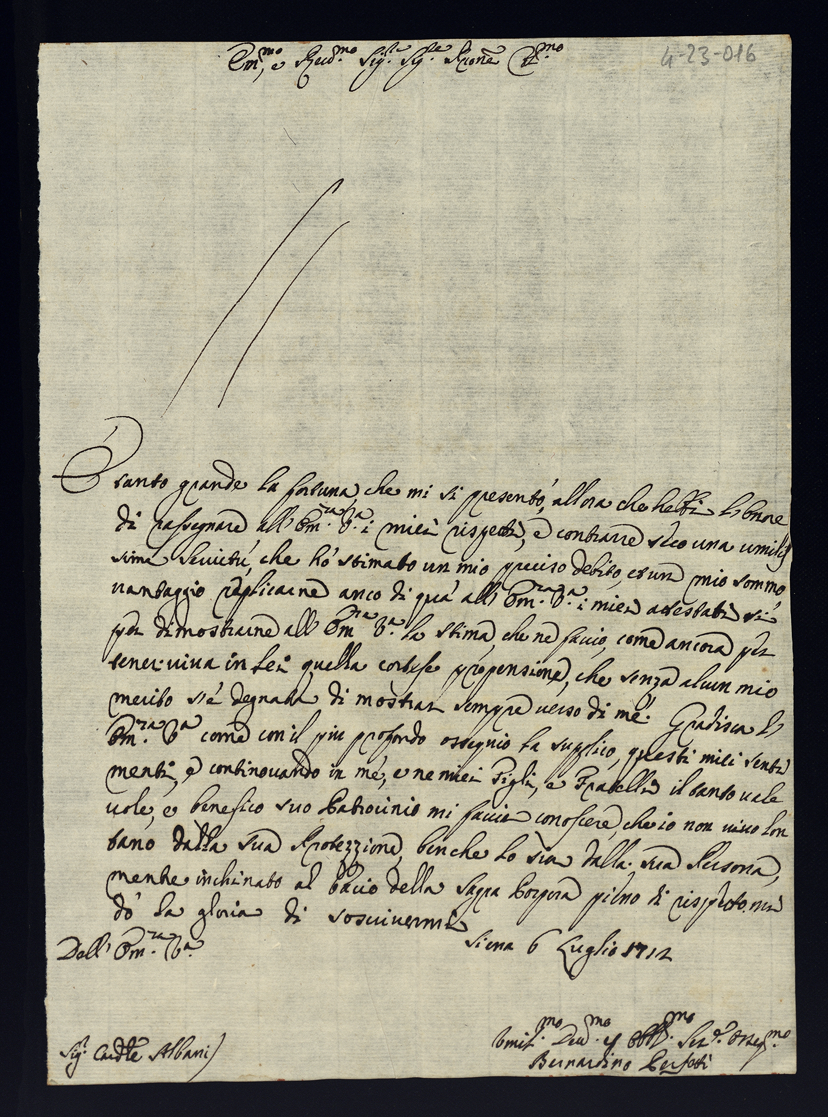 Em.mo, e Reud.mo Sig.re Sig.re Prone Col.mo
4-23-016
È tanto grande la fortuna, che mi si presentò, allora che hebbi l'honore
di rassegnare all'Em.za V.a i miei rispetti, e contrarre seco una umilis
sima servitù, che hò stimato un mio preciso debito, et un mio sommo
vantaggio replicarne anco di quà all'Em.za V.a i miei attestati sì
per dimostrarne all'Em.za V.a la stima, che ne faccio, come ancora per
tener viva in Lei quella cortese propensione, che senza alcun mio
merito s'è degnata di mostrar sempre verso di me. Gradisca l'
Em.za V.a come con il più profondo ossequio la supplico, questi miei senti
menti, e continovando in me, e ne miei Figli, e Fratelli il tanto vale
vole, e benefico suo Patrocinio mi faccia conoscere, che io non vivo lon
tano dalla sua Protezzione, benche lo sia dalla sua Persona,
mentre inchinato al bacio della Sagra Porpora pieno di rispetto mi
dò la gloria di soscrivermi
Dell'Em.za V.a
Siena 6 Luglio 1712
Sig.r Cardle Albani
Umil.mo Deu.mo et Obbl.mo Ser.re Osseq.mo
Bernardino Perfetti